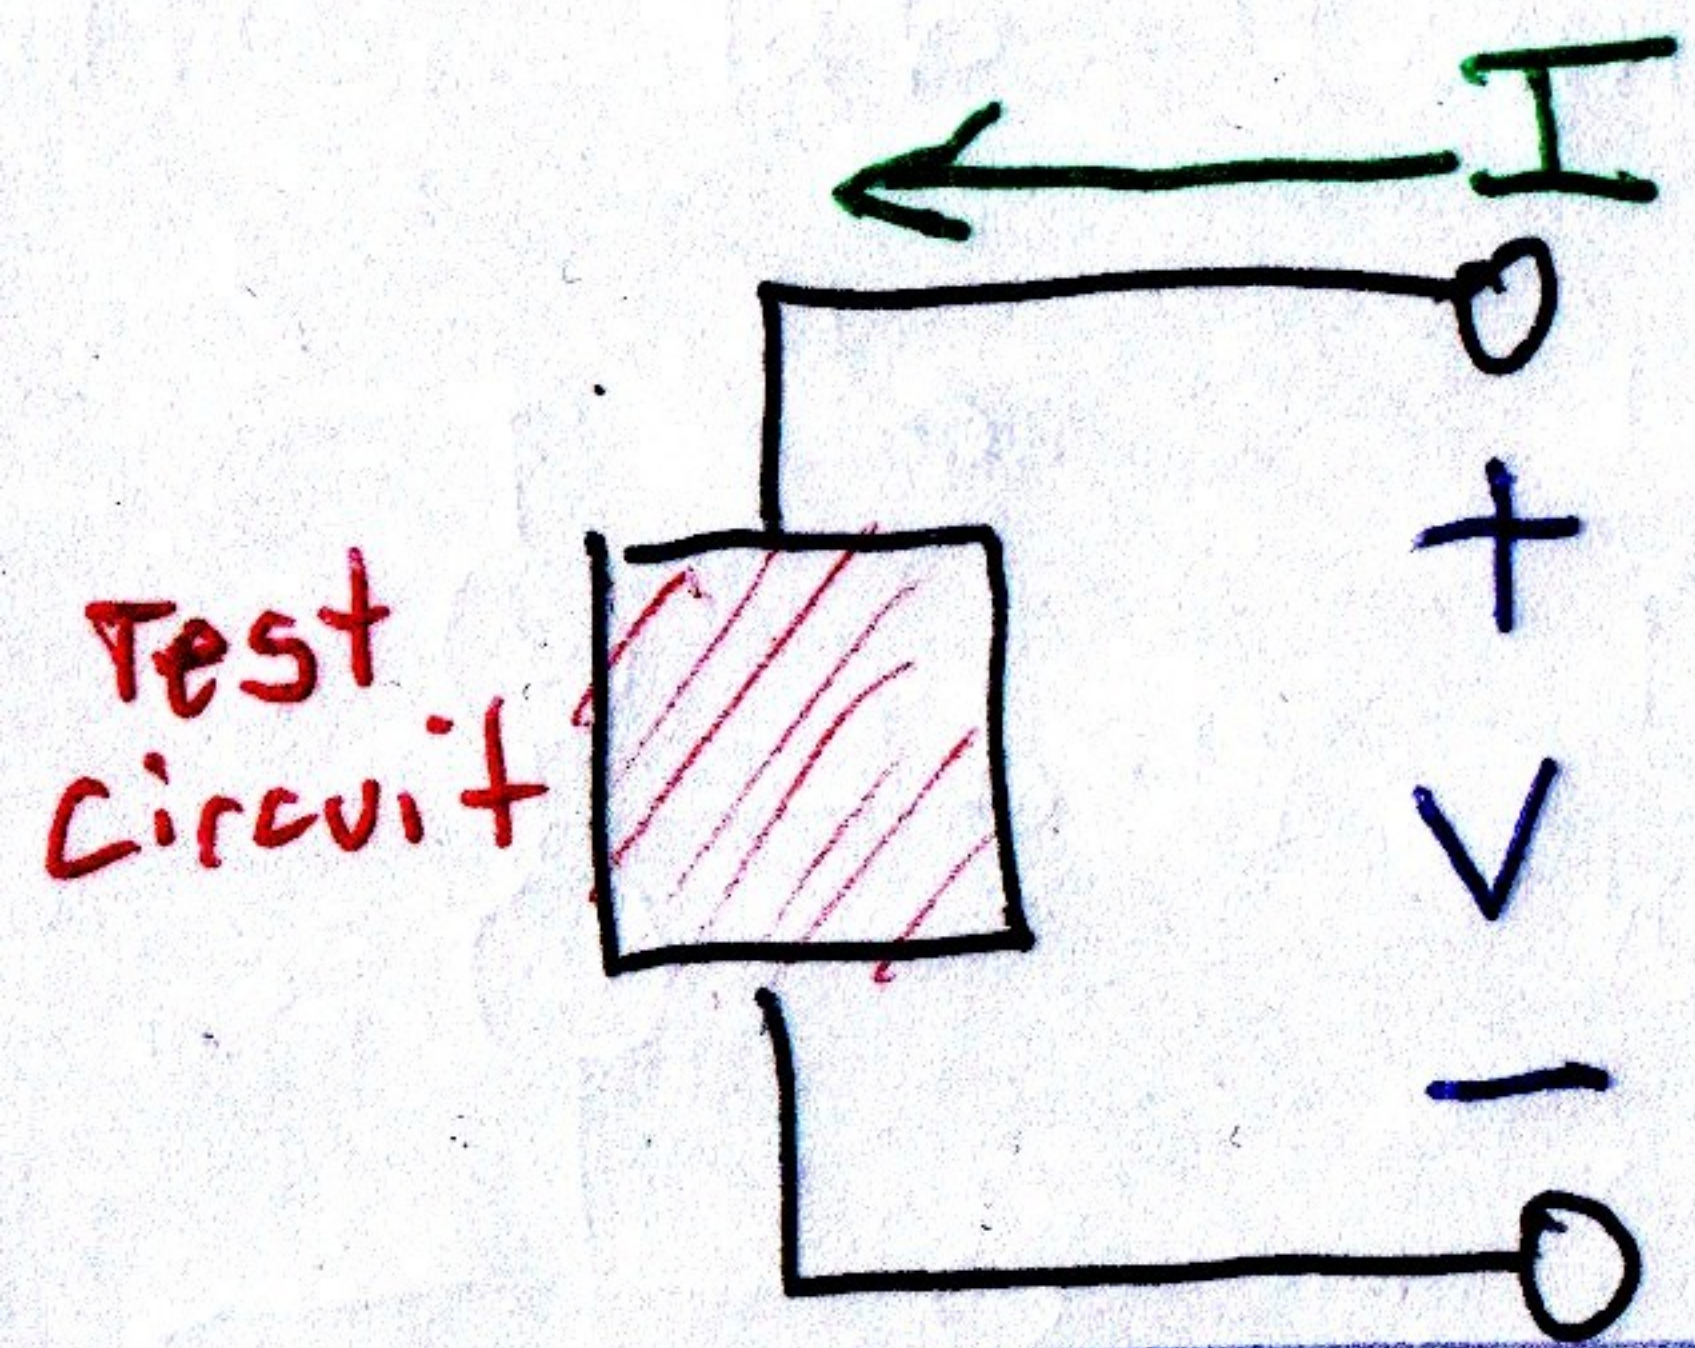 I
+
Test
circuit
V
-